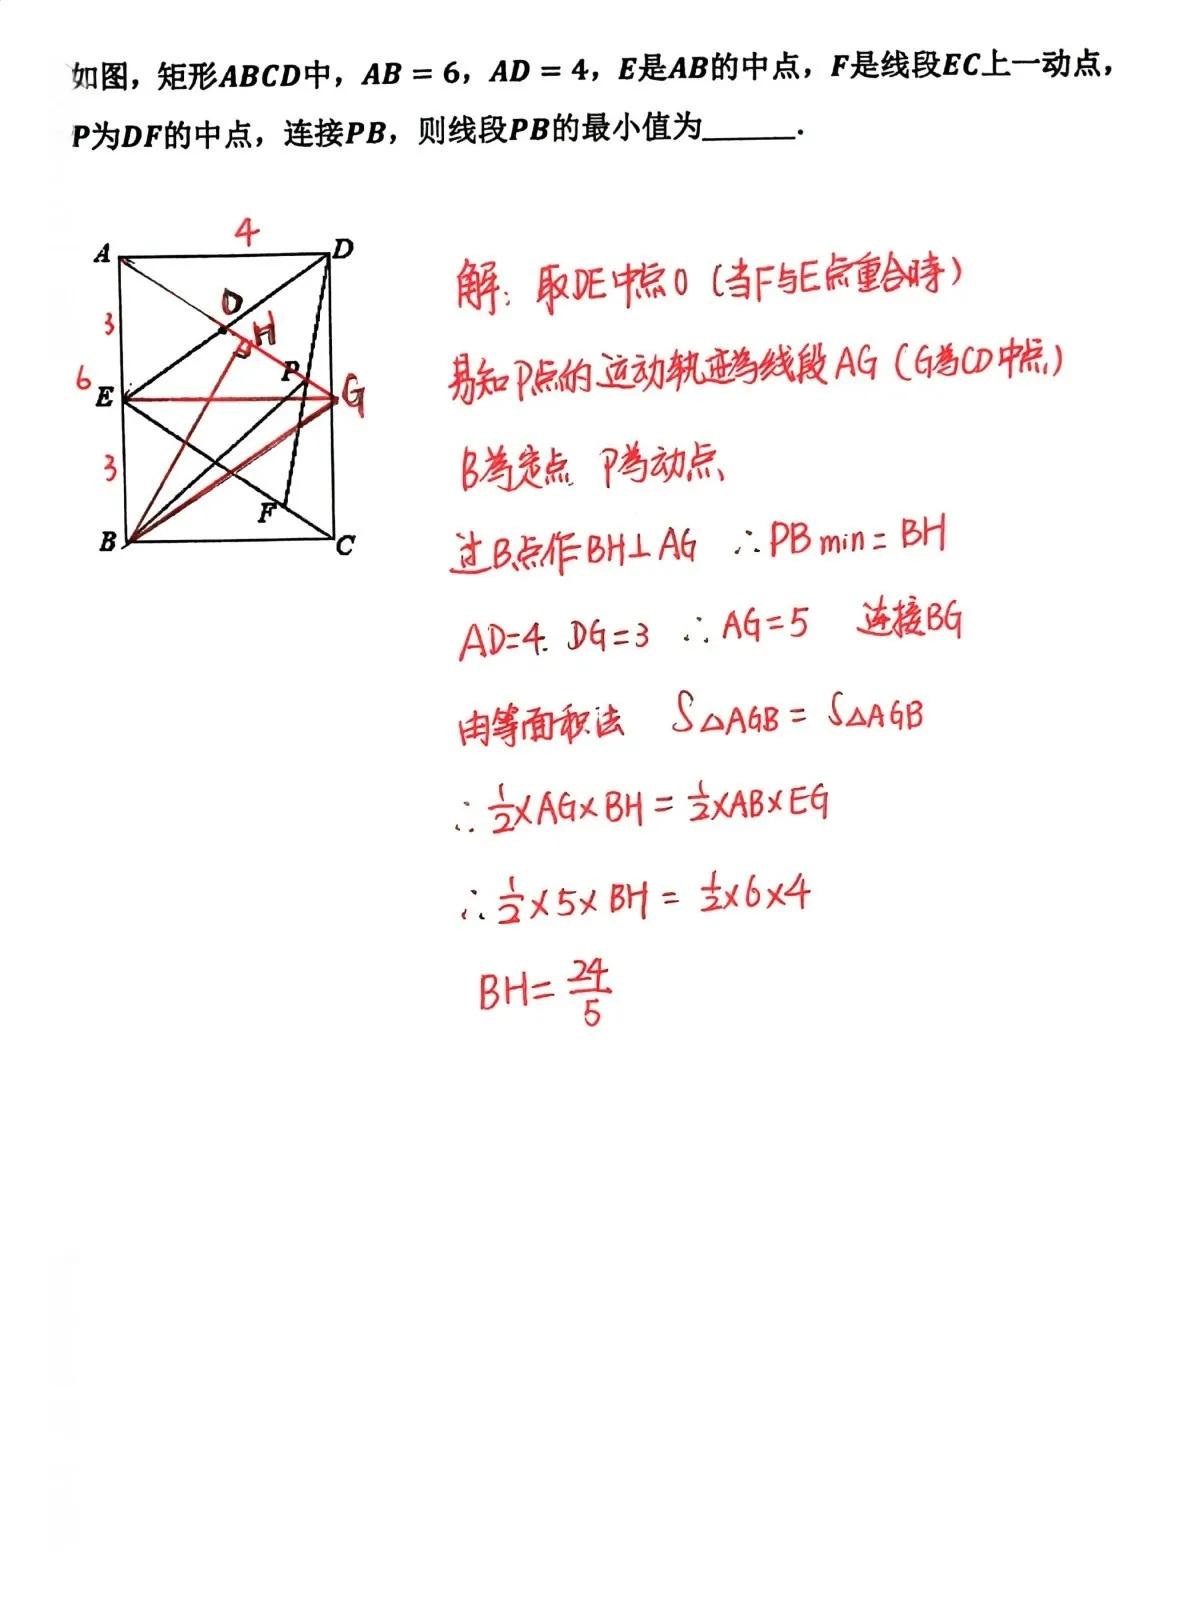 如图，矩形ABCD中，AB = 6，AD = 4，E是AB的中点，F是线段EC上一动点，
P为DF的中点，连接PB，则线段PB的最小值为______.
4
A
D
O
H
3
P
6
E
G
3
F
B
C
解：取DE中点O（当F与E点重合時）
易知P点的运动轨迹為线段AG（G為CD中点）
B為定点 P為动点
过B点作BH⊥AG ∴PB min = BH
AD=4. DG=3 ∴AG=5 连接BG
由等面积法 S△AGB = S△AGB
∴ 1/2×AG×BH = 1/2×AB×EG
∴ 1/2×5×BH = 1/2×6×4
BH= 24/5